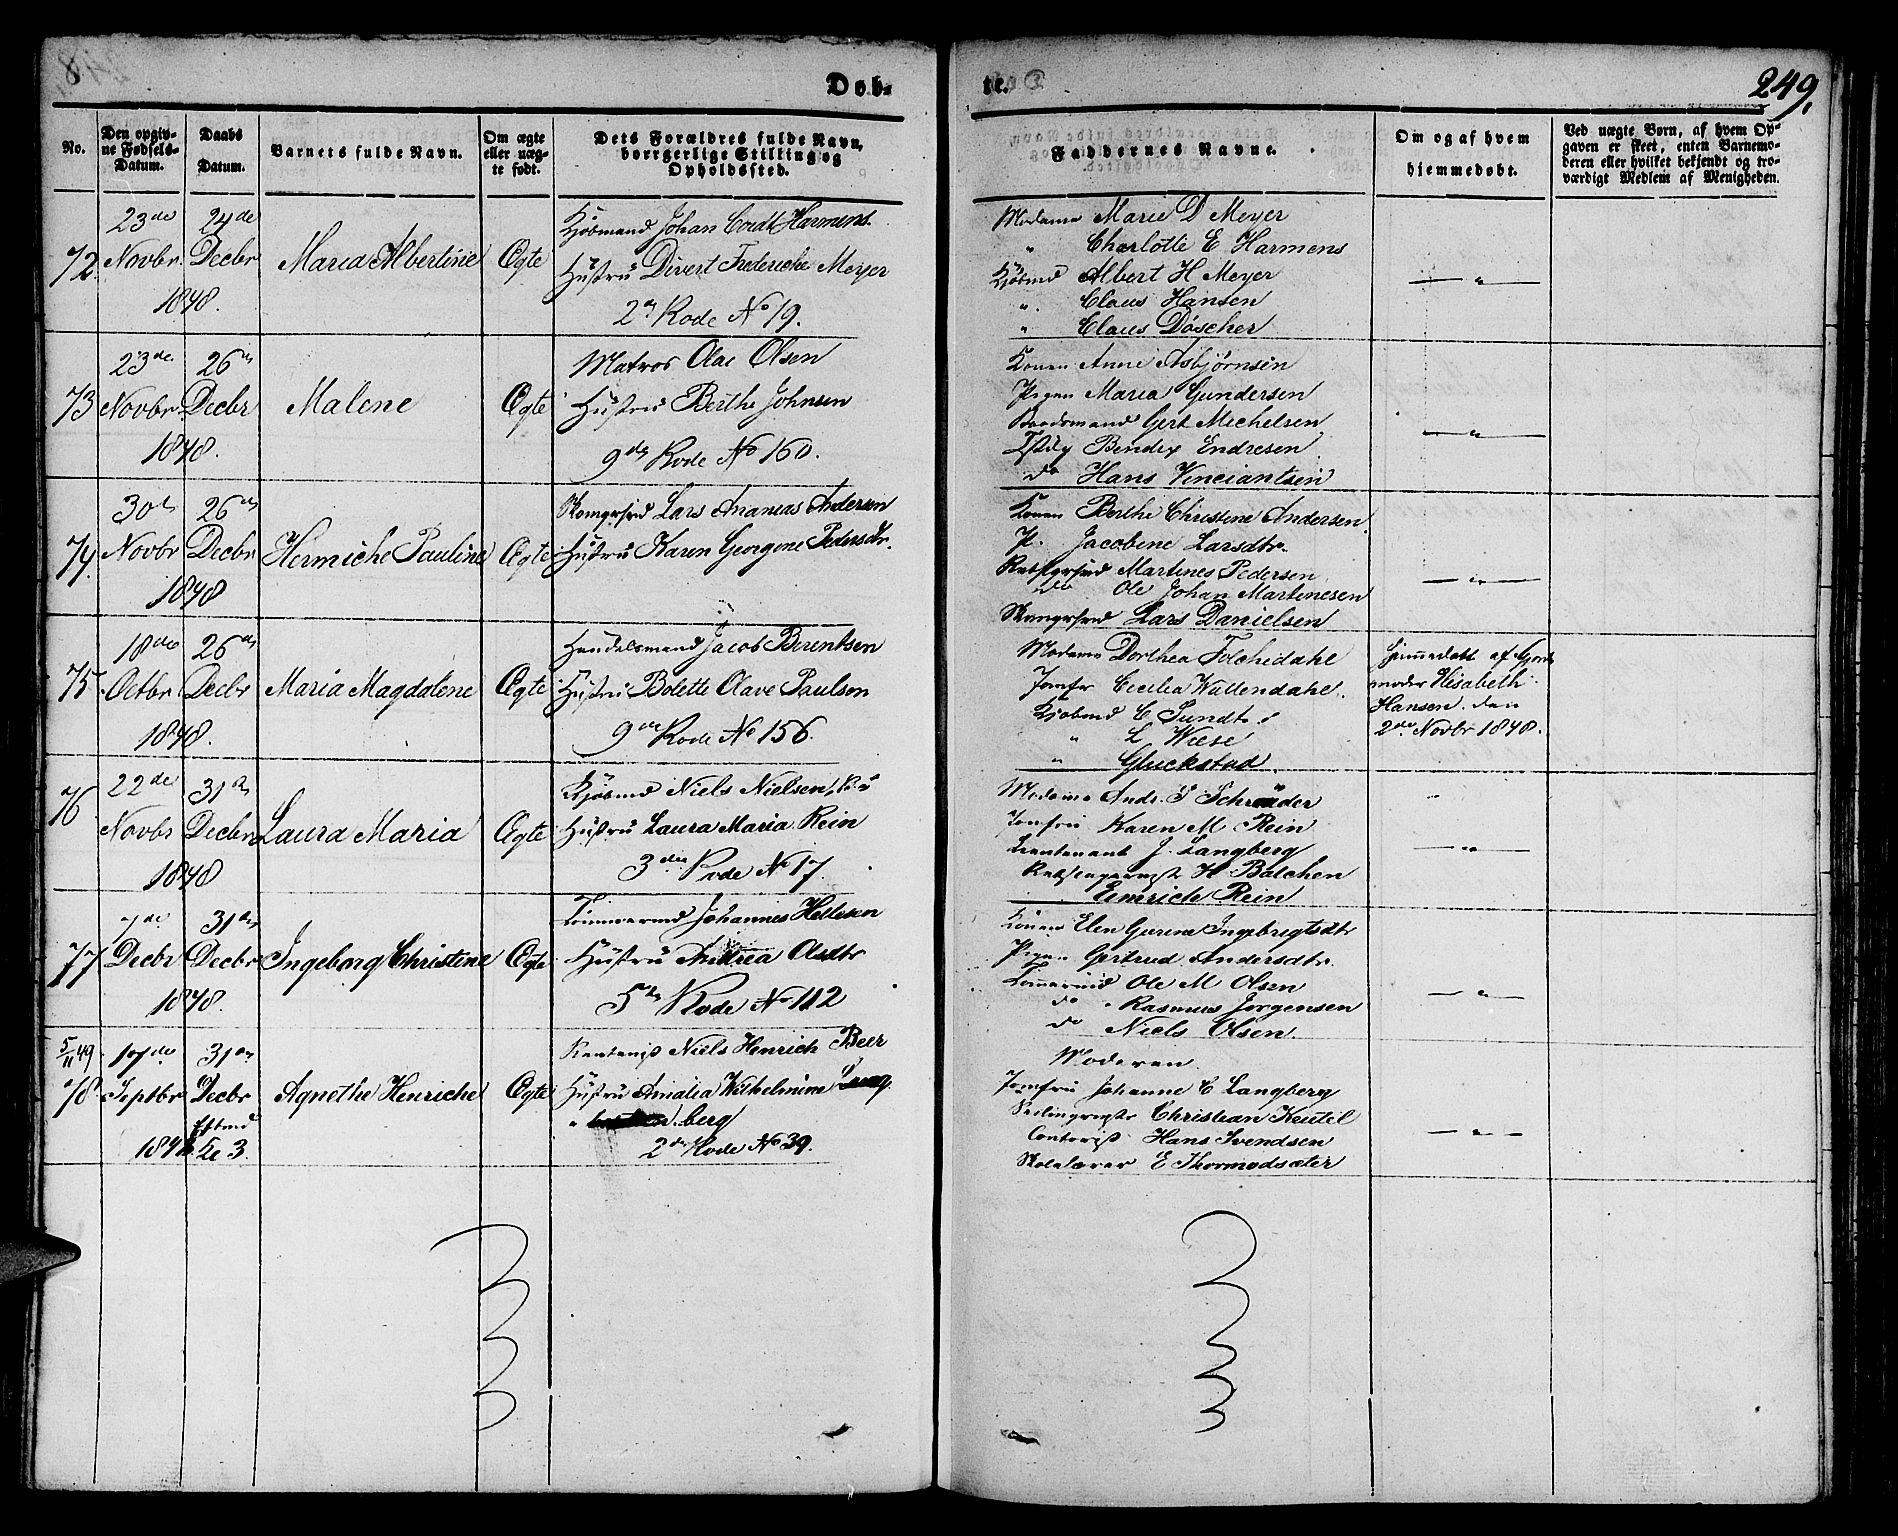 Døb-
te.
249.
No.
Den opgiv-
ne Fødsels-
Datum.
Daabs
Datum.
Barnets fulde Navn.
Om ægte
eller uæg-
te født.
Dets Forældres fulde Navn,
borrgerlige Stilling og
Opholdssted.
Faddernes Navne.
Om og af hvem
hjemmedøbt.
Ved uægte Børn, af hvem Op-
gaven er skeet, enten Barnemo-
deren eller hvilket bekjendt og tro-
værdigt Medlem af Menigheden.
72.
23de
Novbr
24de
Decbr
1848.
Maria Albertine
Ægte
Kjøbmand Johan Cordt Harmens.
Hustru Divert Frederiche Meyer
2den Rode No 19.
Madame Marie D Meyer
" Charlotte E Harmens
Kjøbmd Albert H Meyer
" Claus Hansen
" Claus Döscher
— " —
73
23de
Novbr
26de
Decbr
1848.
Malene
Ægte
Matros Olae Olsen
Hustru Berthe Johnsen
9de Rode No 160.
Konen Anne Asbjørnsen
Pigen Maria Gundersen
Gert Michelsen
Bendix Endresen
do Hans Vinciantsen
— " —
74.
30te
Novbr
26de
Decbr
1848
Hermiche Pauline
Ægte
Lars Ananias Andersen
Hustru Karen Georgene Pedersdtr.
Konen Berthe Christine Andersen
P. Jacobine Larsdtr.
Martines Pedersen
do Ole Johan Martinesen
Lars Danielsen
— " —
75
18de
Octbr
26de
Decbr
1848.
Maria Magdalene
Ægte
Handelsmand Jacob Berentsen
Hustru Bolette Olave Paulson
9de Rode No 156.
Madame Dorthea Folchedahl
Jomfr Cecilia Wallendahl.
Kjøbmd C Sundt
" L Wiese
" Gluckstad.
Hjemmedøbt af Gjord-
moder Elisabeth
Hansen den
2de Novbr 1848.
76
22de
Novbr
31te
Decbr
1848
Laura Maria
Ægte
Kjøbmd Niels Nielsen,
Hustru Laura Maria Rein
3die Rode No 17.
Madame Andr. S Schrøder
Jomfru Karen M Rein
Lieutenant J. Langberg
H Balchen
Emrich Rein
— " —
77
7de
Decbr
31te
Decbr
1848.
Ingeborg Christine
Ægte
Tømmermd Johannes Hellesen
Hustru Andrea Olsdtr
5te Rode No 112
Konen Elen Gurine Ingebrigtsdtr
Pigen Gertrud Andersdtr.
Tømmermd Ole M Olsen
do Rasmus Jorgensen
do Niels Olsen.
— " —
5/11 49
78
17de
Septbr
31te
Decbr
Agnethe Henriche
Ægte
Niels Henrich Beer
Hustru Amalia Wilhelmine Lang
berg
2de Rode No 39.
Moderen
Jomfru Johanne C Langberg
Christian Keutel
Contorist Hans Svendsen
Skolelærer E Thormodsæter
— " —